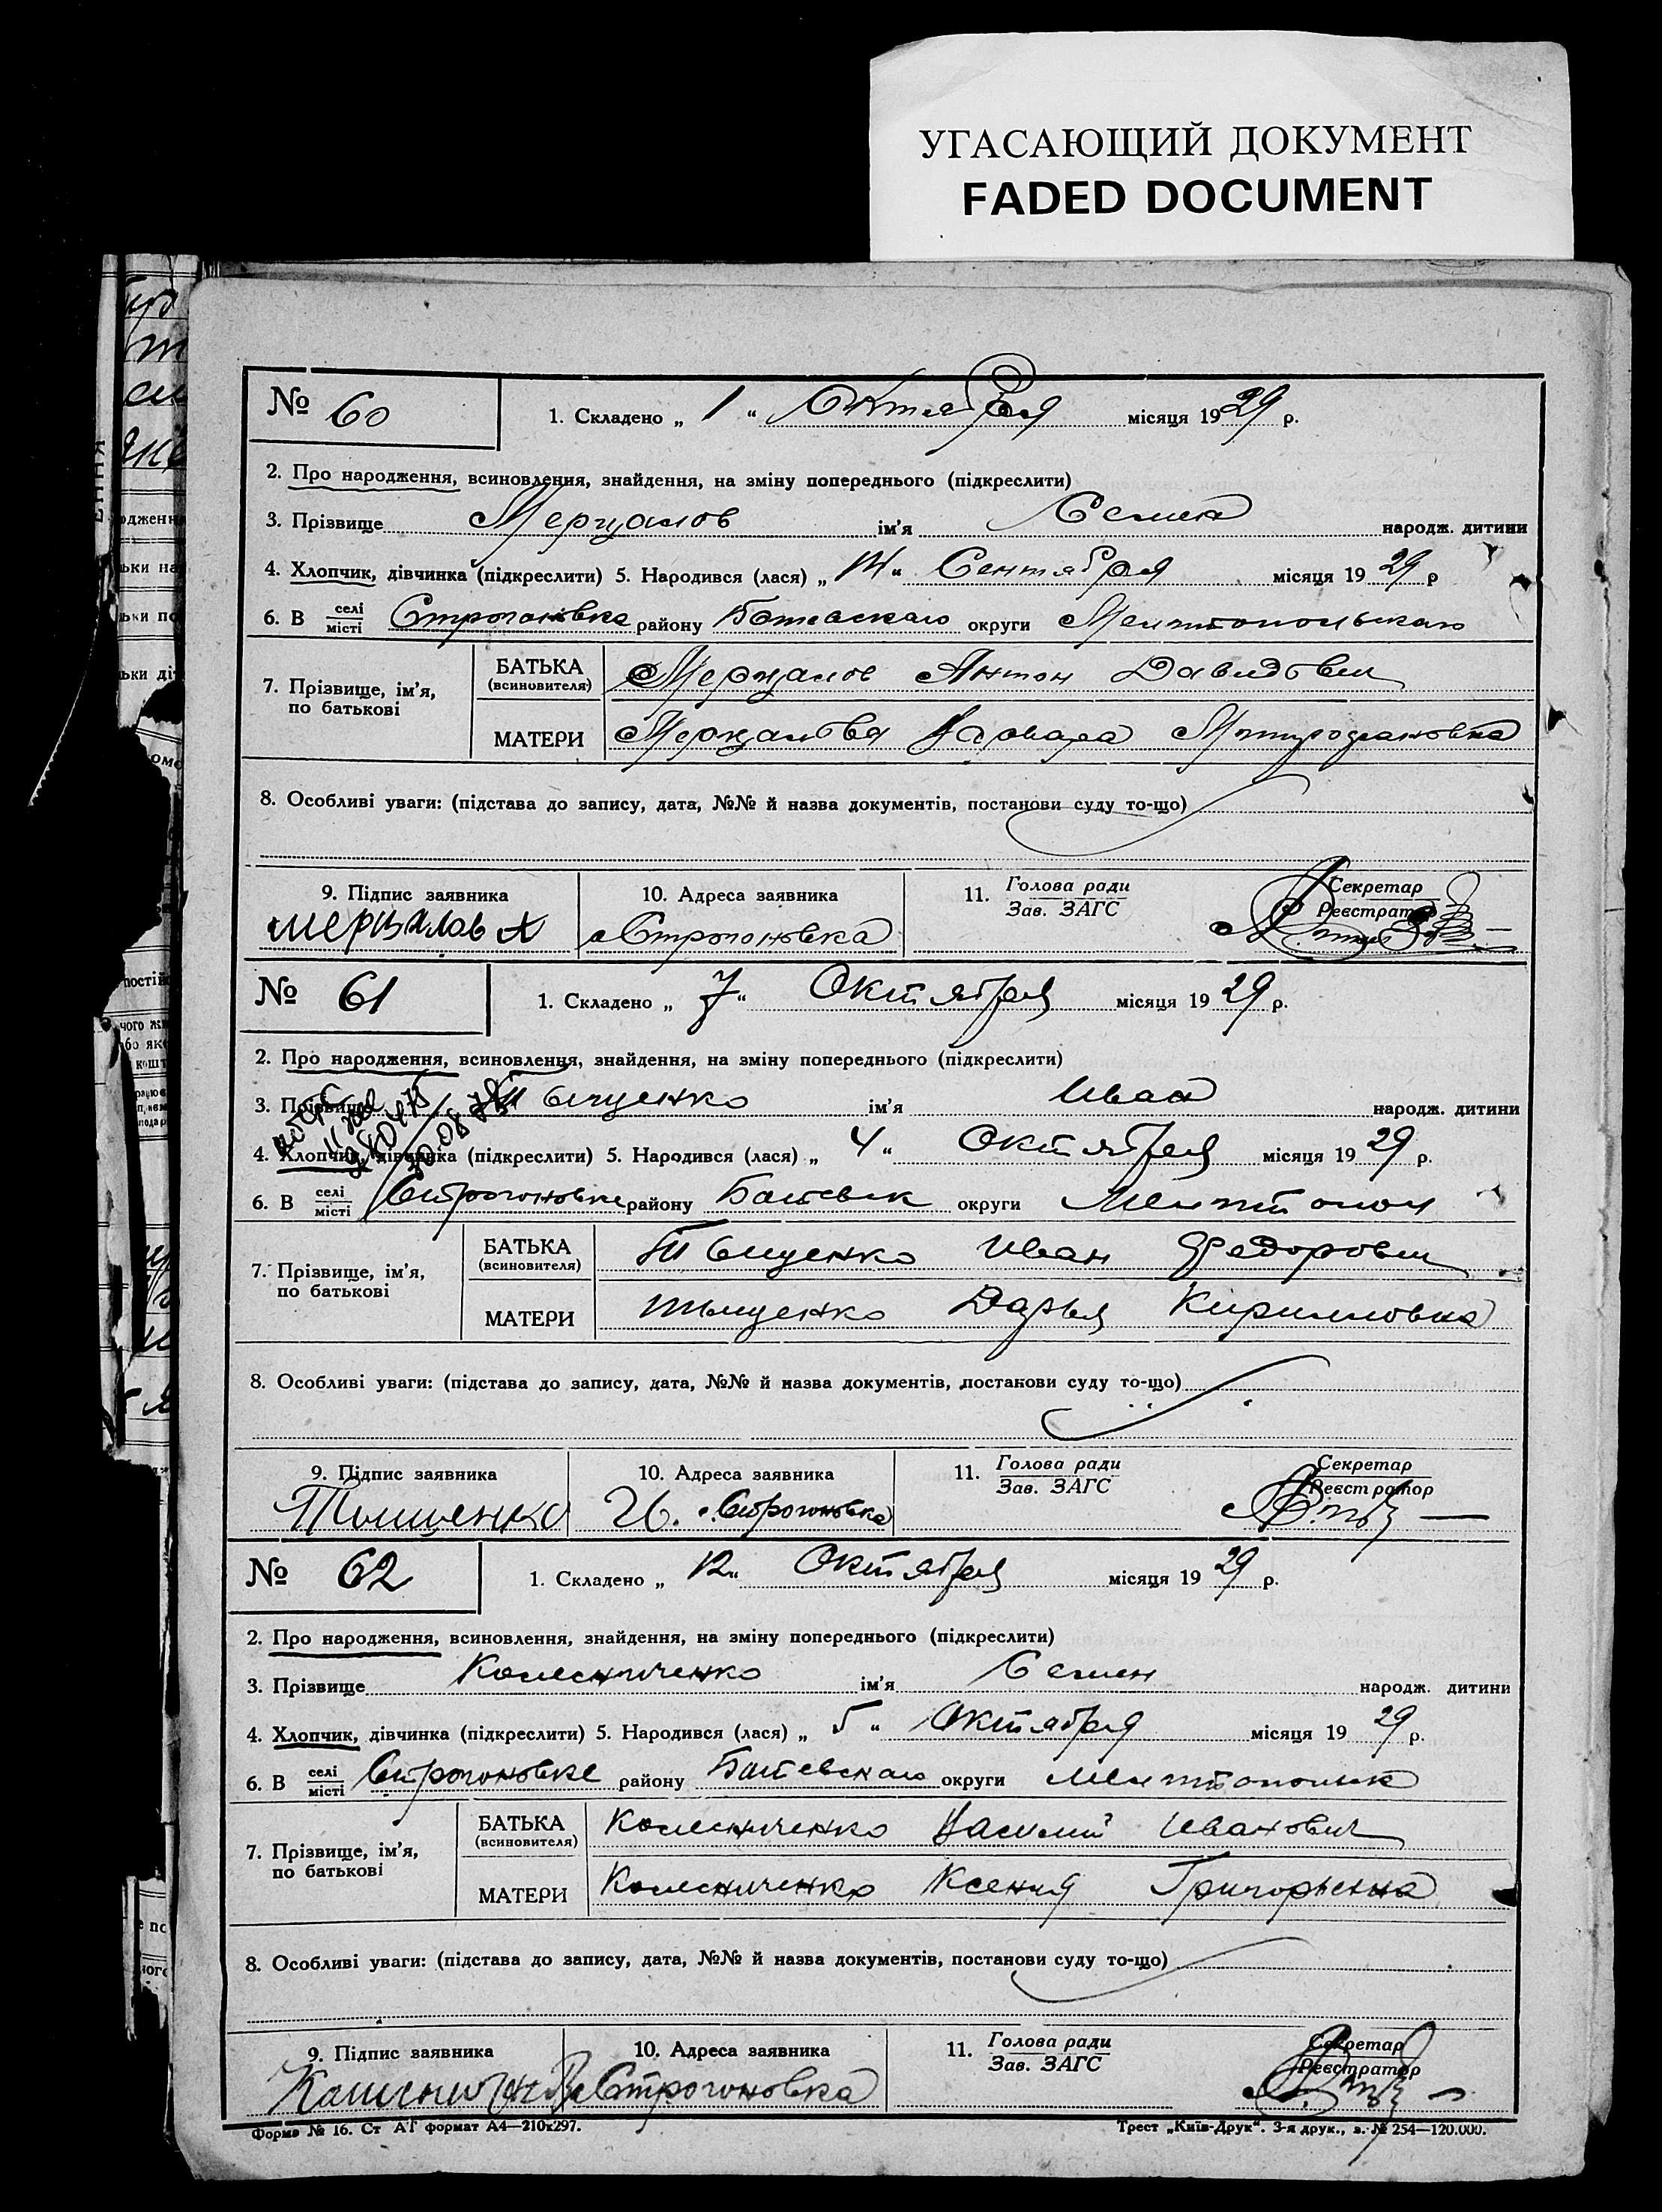 УГАСАЮЩИЙ ДОКУМЕНТ
FADED DOCUMENT
№ 60
1. Складено „ 1 “ Октября місяця 1929 р.
2. Про народження, всиновлення, знайдення, на зміну попереднього (підкреслити)
3. Прізвище Мерцалов ім’я Семен народж. дитини
4. Хлопчик, дівчинка (підкреслити) 5. Народився (лася) „ “ Сентября місяця 1929 р
6. В селі місті Строгоновка району Ботевскаго округи Мелитопольскаго
7. Прізвище, ім’я, по батькові
БАТЬКА (всиновителя) Мерцалов Антон Давидович
МАТЕРИ Мерцалова Варвара Митрофановна
8. Особливі уваги: (підстава до запису, дата, №№ й назва документів, постанови суду то-що)
9. Підпис заявника
Мерцалов А
10. Адреса заявника
с Строгоновка
11. Голова ради
Зав. ЗАГС
Секретар
Реєстратор
№ 61
1. Складено „ 7 “ Октября місяця 1929 р.
2. Про народження, всиновлення, знайдення, на зміну попереднього (підкреслити)
3. Прізвище Тыщенко ім’я Иван народж. дитини
4. Хлопчик, дівчинка (підкреслити) 5. Народився (лася) „ 4 “ Октября місяця 1929 р.
6. В селі місті Строгоновке району Ботевск округи Мелитопол
7. Прізвище, ім’я, по батькові
БАТЬКА (всиновителя) Тыщенко Иван Федорович
МАТЕРИ Тыщенко Дарья Кирилловна
8. Особливі уваги: (підстава до запису, дата, №№ й назва документів, постанови суду то-що)
9. Підпис заявника
Тышченко И.
10. Адреса заявника
с. Строгоновка
11. Голова ради
Зав. ЗАГС
Секретар
Реєстратор
№ 62
1. Складено „ 12 “ Октября місяця 1929 р.
2. Про народження, всиновлення, знайдення, на зміну попереднього (підкреслити)
3. Прізвище Колесниченко ім’я Семен народж. дитини
4. Хлопчик, дівчинка (підкреслити) 5. Народився (лася) „ 5 “ Октября місяця 1929 р.
6. В селі місті Строгоновке району Ботевскаго округи Мелитопольск
7. Прізвище, ім’я, по батькові
БАТЬКА (всиновителя) Колесниченко Василий Иванович
МАТЕРИ Колесниченко Ксения Григорьевна
8. Особливі уваги: (підстава до запису, дата, №№ й назва документів, постанови суду то-що)
9. Підпис заявника
10. Адреса заявника
с Строгоновка
11. Голова ради
Зав. ЗАГС
Секретар
Реєстратор
Форма № 16. Ст АГ формат А4—210х297.
Трест „Київ-Друк“. 3-я друк., з. № 254—120.000.